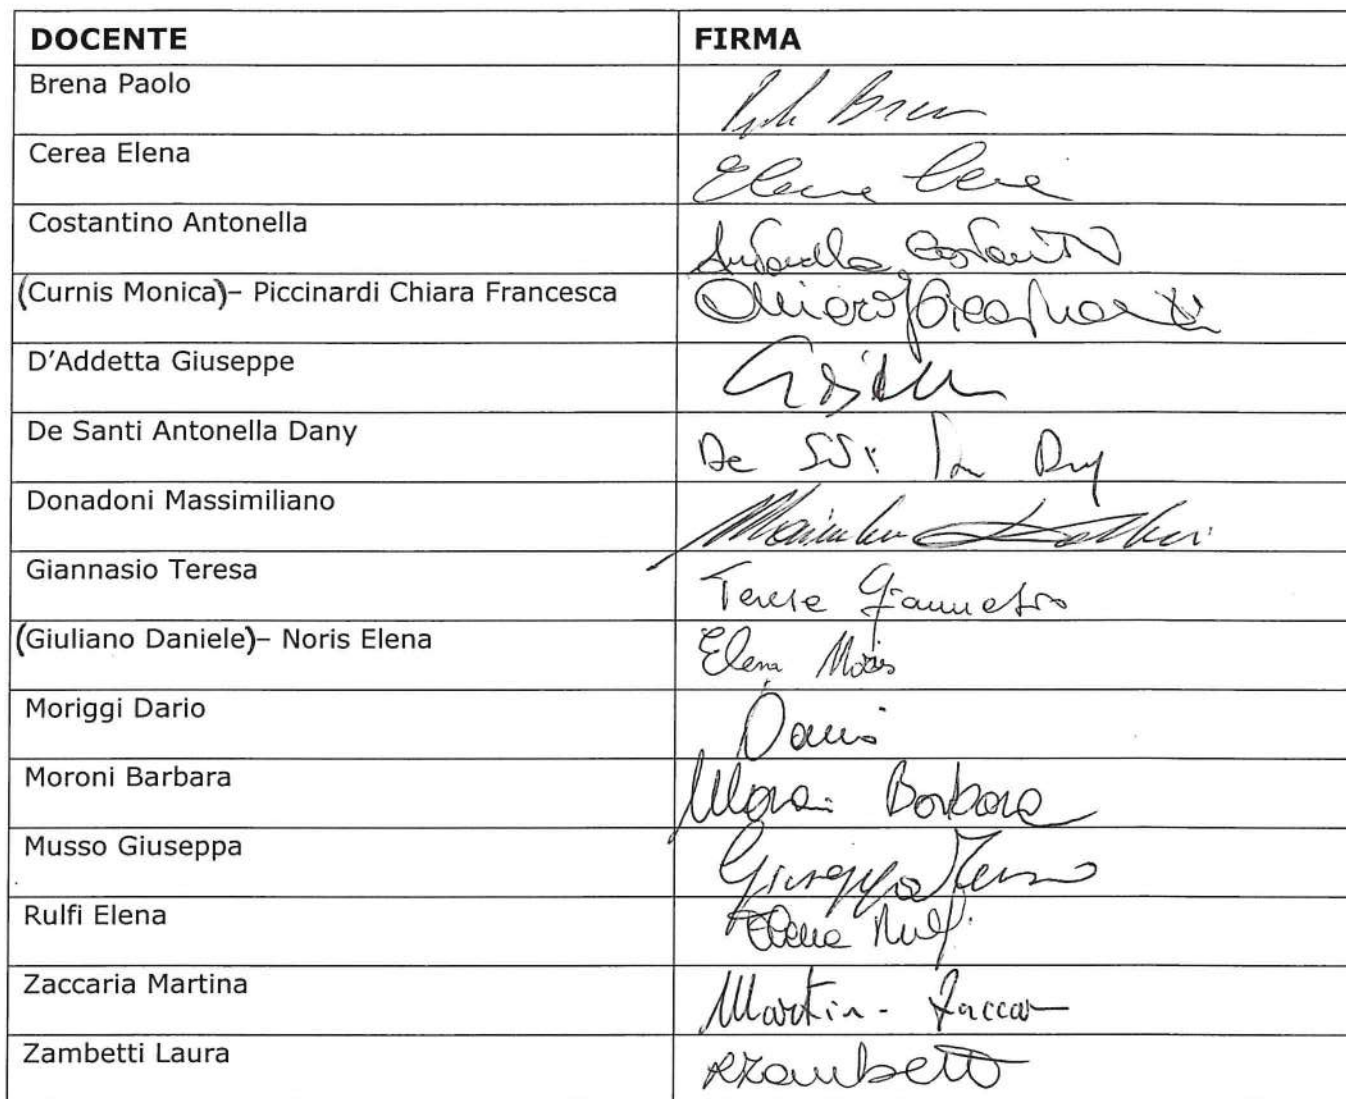 DOCENTE FIRMA
Brena Paolo
Cerea Elena Elena
Costantino Antonella Antonella Costantino
(Curnis Monica)– Piccinardi Chiara Francesca Chiara
D'Addetta Giuseppe
De Santi Antonella Dany De
Donadoni Massimiliano
Giannasio Teresa Teresa Giannasio
(Giuliano Daniele)– Noris Elena Elena Noris
Moriggi Dario Dario
Moroni Barbara Moroni Barbara
Musso Giuseppa Giuseppa Musso
Rulfi Elena Elena Rulfi
Zaccaria Martina Martina Zaccar
Zambetti Laura